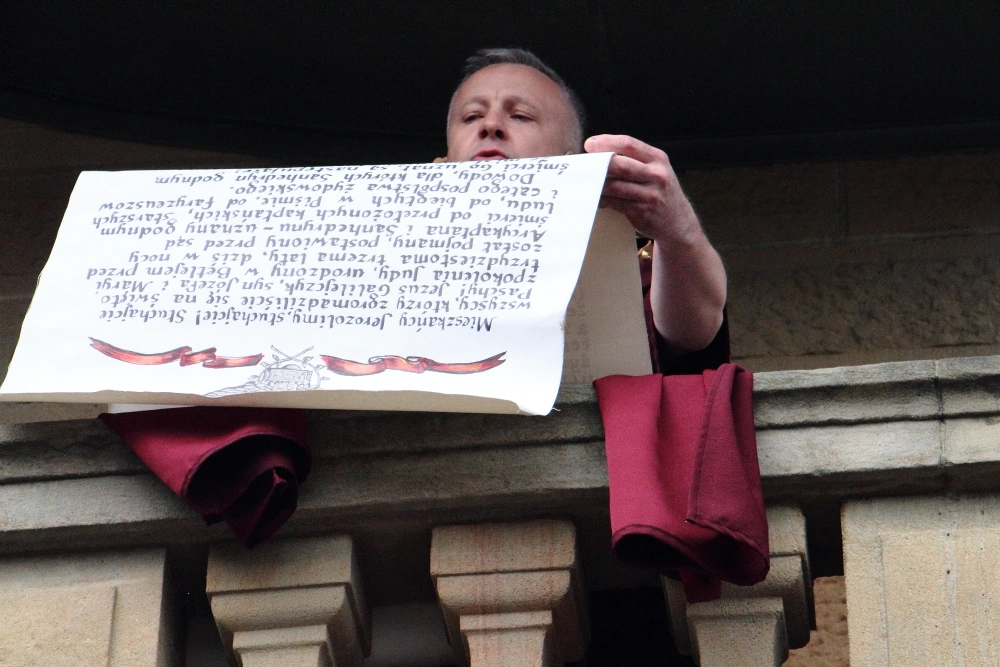 Mieszkańcy Jerozolimy, słuchajcie! Słuchajcie
wszyscy, którzy zgromadziliście się na święto
Paschy! Jezus Galilejczyk, syn Józefa i Maryi
z pokolenia Judy, urodzony w Betlejem przed
trzydziestoma trzema laty, dziś w nocy
został pojmany, postawiony przed sąd
Arcykapłana i Sanhedrynu – uznany godnym
śmierci od przełożonych kapłańskich, Starszych
ludu, od biegłych w Piśmie, od Faryzeuszów
i całego pospólstwa żydowskiego.
Dowody, dla których Sanhedryn godnym
śmierci Go uznał, są